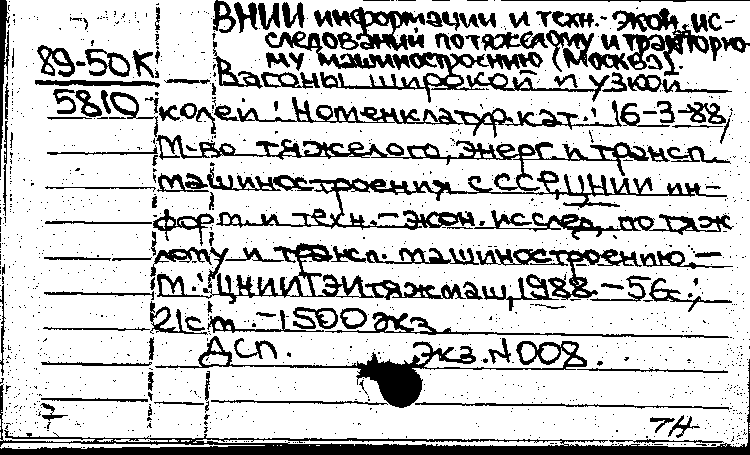 ВНИИ информации и техн.-экон. ис-
следований по тяжелому и тракторно-
му машиностроению (Москва).
89-50К
5810
Вагоны широкой и узкой
колеи : Номенклатур. кат. : 16-3-88/
М-во тяжелого, энерг. и трансп.
машиностроения СССР, ЦНИИ ин-
форм. и техн.-экон. исслед. по тяж
лому и трансп. машиностроению. -
М. : ЦНИИТЭИтяжмаш, 1988. - 56с.;
21см. - 1500 экз.
ДСП. Экз. N 008.
7Н